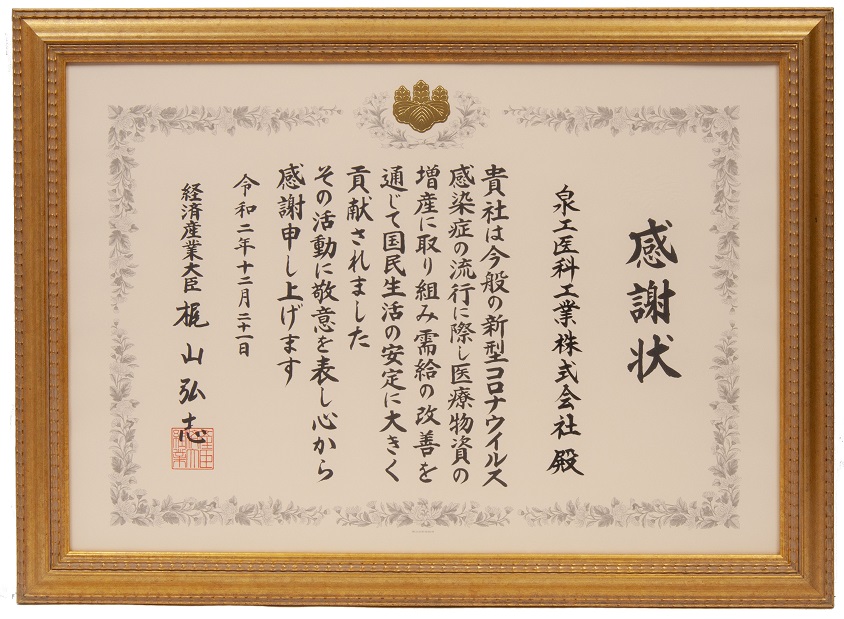 感謝状
泉工医科工業株式会社 殿
貴社は今般の新型コロナウイルス
感染症の流行に際し医療物資の
増産に取り組み需給の改善を
通じて国民生活の安定に大きく
貢献されました
その活動に敬意を表し心から
感謝申し上げます
令和二年十二月二十一日
経済産業大臣 梶山弘志